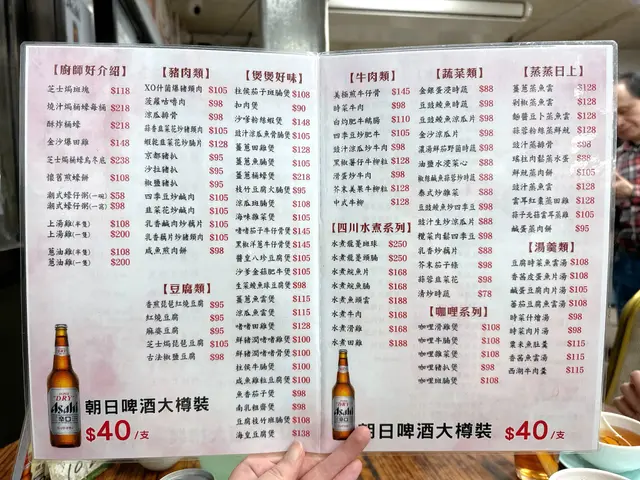 【廚師好介紹】
芝士焗班塊 $118
燒汁焗桶蠔每桶 $218
酥炸桶蠔 $218
金沙爆田雞 $148
芝士焗桶蠔烏冬底 $238
懷舊煎蠔餅 $108
潮式蠔仔粥(一碗) $58
潮式蠔仔粥(一窩) $98
上湯雞(半隻) $108
上湯雞(一隻) $200
蔥油雞(半隻) $108
蔥油雞(一隻) $200
【豬肉類】
XO什菌爆豬頸肉 $105
菠蘿咕嚕肉 $98
涼瓜排骨 $98
蒜香韭菜花炒豬頸肉 $105
蝦乾韭菜花炒腩片 $128
京都豬扒 $95
沙拉豬扒 $95
椒鹽豬扒 $95
四季豆炒鹹肉 $105
韭菜花炒鹹肉 $105
乳香鹹肉炒藕片 $105
乳香藕片炒豬頸肉 $105
咸魚煎肉餅 $98
【豆腐類】
香煎琵琶紅燒豆腐 $95
紅燒豆腐 $95
麻婆豆腐 $95
芝士焗琵琶豆腐 $105
古法椒鹽豆腐 $98
【煲煲好味】
柱侯茄子班腩煲 $108
扣肉煲 $90
沙嗲粉絲蝦煲 $148
豉汁涼瓜魚骨腩煲 $105
薑蔥田雞煲 $128
薑蔥魚腩煲 $105
薑蔥桶蠔煲 $218
枝竹豆腐火腩煲 $95
涼瓜班腩煲 $108
海味雜菜煲 $105
啫啫茄子牛仔骨煲 $145
黑椒洋蔥牛仔骨煲 $145
醬皇八珍豆腐煲 $105
沙爹金菇肥牛煲 $105
生菜鯪魚球豆腐煲 $98
薑蔥魚雲煲 $115
涼瓜魚雲煲 $115
啫啫田雞煲 $128
鮮豬潤啫啫雞煲 $100
鮮豬潤啫啫煲 $100
柱侯牛腩煲 $100
咸魚雞粒豆腐煲 $100
魚香茄子煲 $98
南乳粗齋煲 $98
豆腐枝竹班腩煲 $108
海皇豆腐煲 $138
【牛肉類】
美極煎牛仔骨 $145
時菜牛肉 $98
白灼肥牛鵝腸 $110
四季豆炒肥牛 $105
豉汁涼瓜炒牛肉 $98
黑椒薯仔牛柳粒 $128
滑蛋炒牛肉 $98
芥末美果牛柳粒 $128
中式牛柳 $128
【四川水煮系列】
水煮龍躉班球 $250
水煮龍躉頭腩 $250
水煮鯇魚片 $168
水煮鯇魚腩 $168
水煮魚頭雲 $188
水煮牛肉 $168
水煮滑雞 $168
水煮田雞 $188
【蔬菜類】
金銀蛋浸時蔬 $88
豆豉鯪魚時蔬 $98
豆豉鯪魚涼瓜片 $98
金沙涼瓜片 $98
濃湯鮮茄野菌時蔬 $98
油鹽水浸菜心 $88
椒絲鹹魚蒜蓉炒時蔬 $88
泰式炒雜菜 $88
豆豉鯪魚炒四季豆 $98
豉汁生炒涼瓜片 $88
欖菜肉鬆四季豆 $98
乳香炒藕片 $88
芥末茄子條 $98
蒜蓉韭菜花 $98
清炒時蔬 $78
【咖哩系列】
咖哩滑雞煲 $108
咖哩牛腩煲 $108
咖哩雜菜煲 $108
咖哩豬扒煲 $98
咖哩班腩煲 $108
【蒸蒸日上】
薑蔥蒸魚雲 $128
剁椒蒸魚雲 $128
麵醬瓜卜蒸魚雲 $128
蒜蓉粉絲蒸鮮魷 $128
豉汁蒸排骨 $98
瑤柱肉鬆蒸水蛋 $88
鮮魷蒸肉餅 $105
豉汁蒸魚雲 $128
雲耳紅棗蒸田雞 $128
蒜子光蓉雲耳蒸雞 $105
鹹蛋蒸肉餅 $95
【湯羹類】
豆腐時菜魚雲湯 $108
香茜皮蛋魚片湯 $108
鹹蛋豆腐肉片湯 $105
蕃茄豆腐魚雲湯 $108
時菜什燴湯 $98
時菜肉片湯 $98
粟米魚肚羹 $115
香茜魚雲湯 $115
西湖牛肉羹 $115
朝日啤酒大樽裝
$40/支
朝日啤酒大樽裝 $40/支
DRY
Asahi
辛口
Asahi